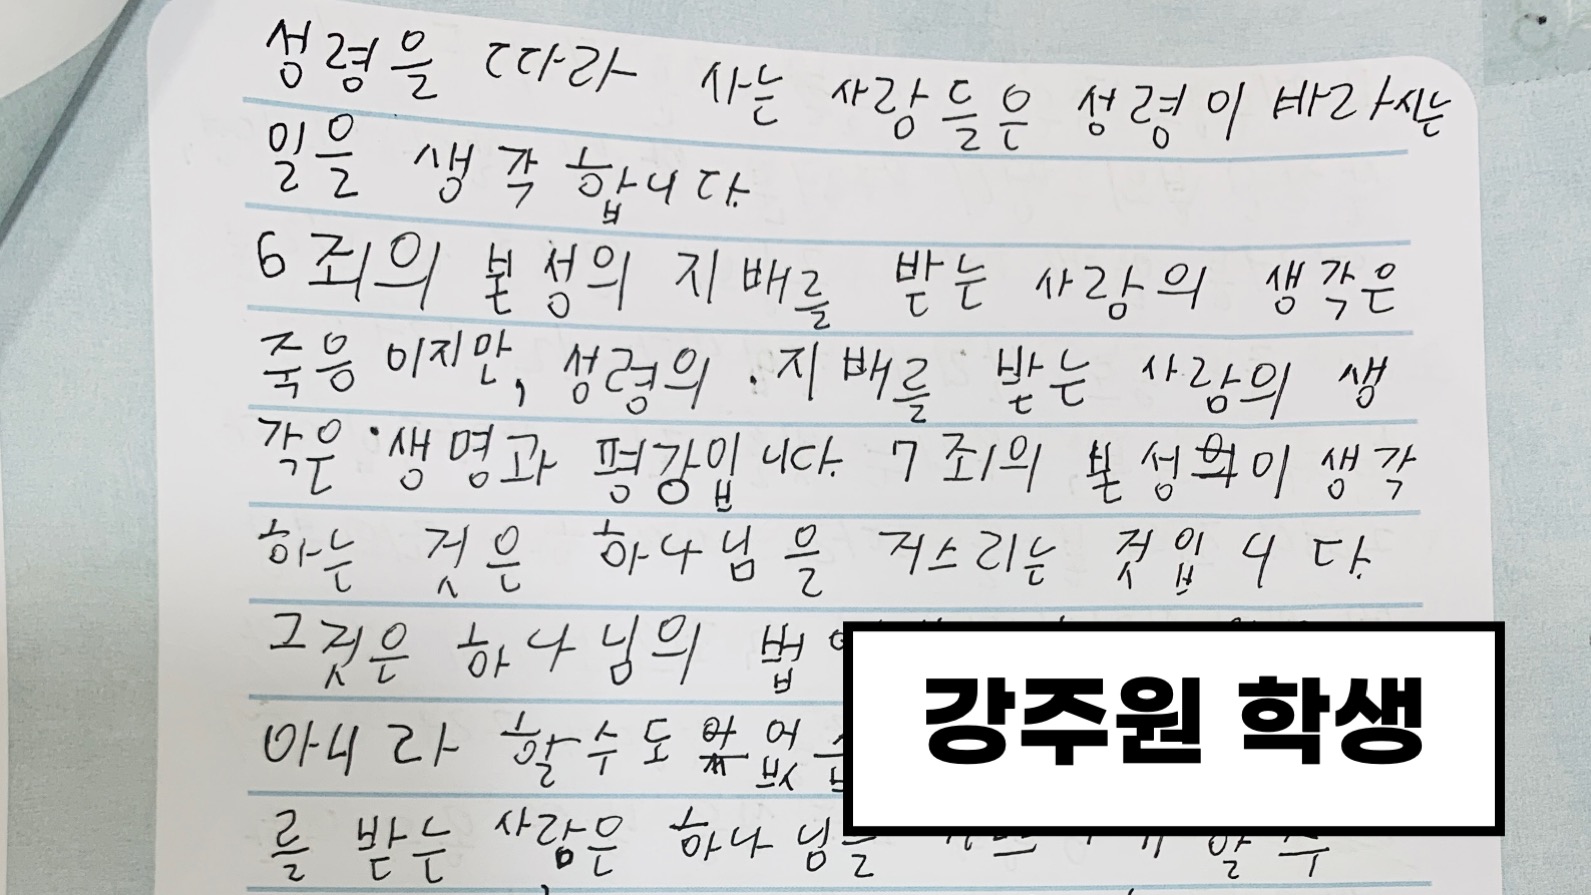 성령을 따라 사는 사람들은 성령이 바라시는
일을 생각합니다.
6 죄의 본성의 지배를 받는 사람의 생각은
죽음이지만, 성령의 지배를 받는 사람의 생
각은 생명과 평강입니다. 7 죄의 본성이 생각
하는 것은 하나님을 거스리는 것입니다.
그것은 하나님의 법
아니라 할수도 없
를 받는 사람은 하나님을
강주원 학생